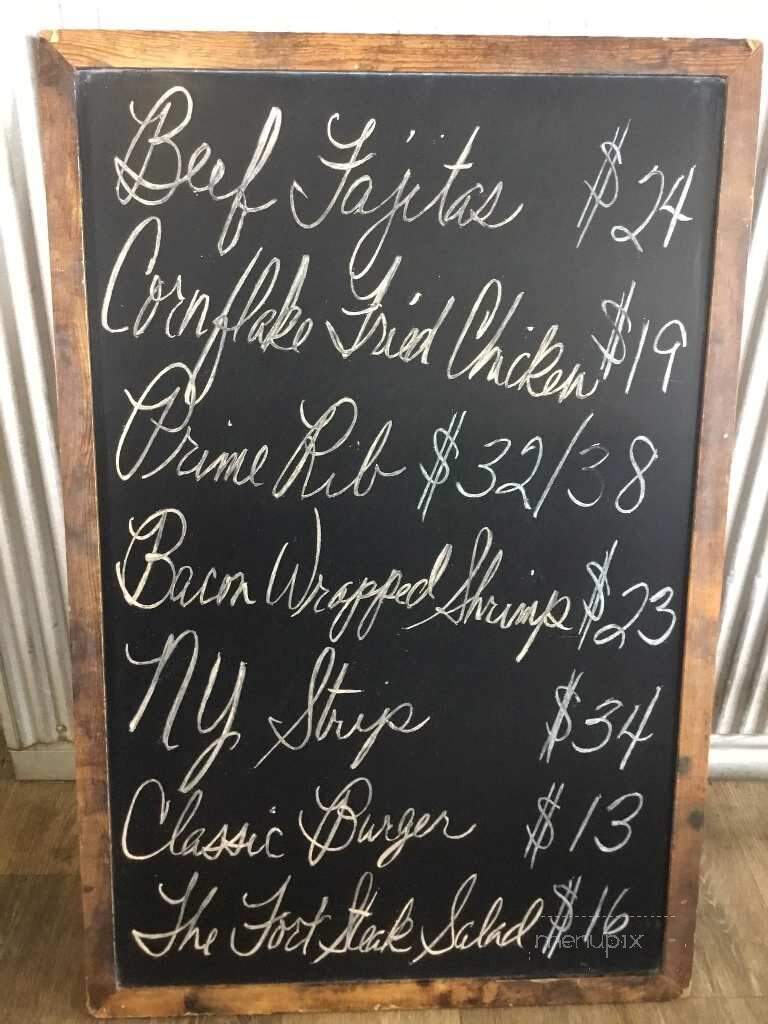 Beef Fajitas $24
Cornflake Fried Chicken $19
Prime Rib $32/38
Bacon Wrapped Shrimp $23
NY Strip $34
Classic Burger $13
The Fort Steak Salad $16
menupix